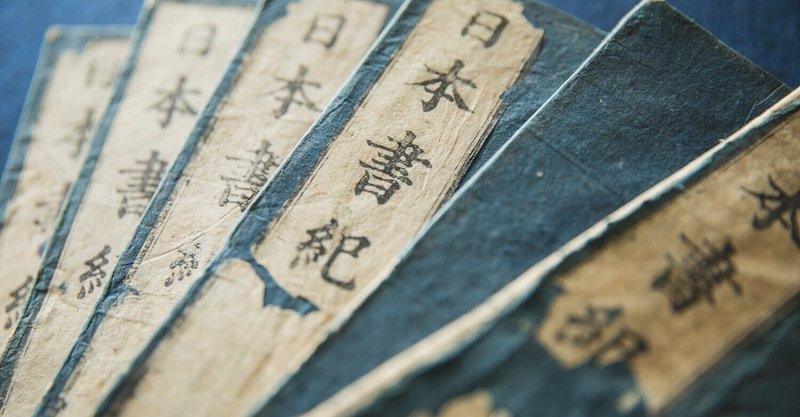 本書紀
日本書紀
日本書紀
日本書紀
日本書紀